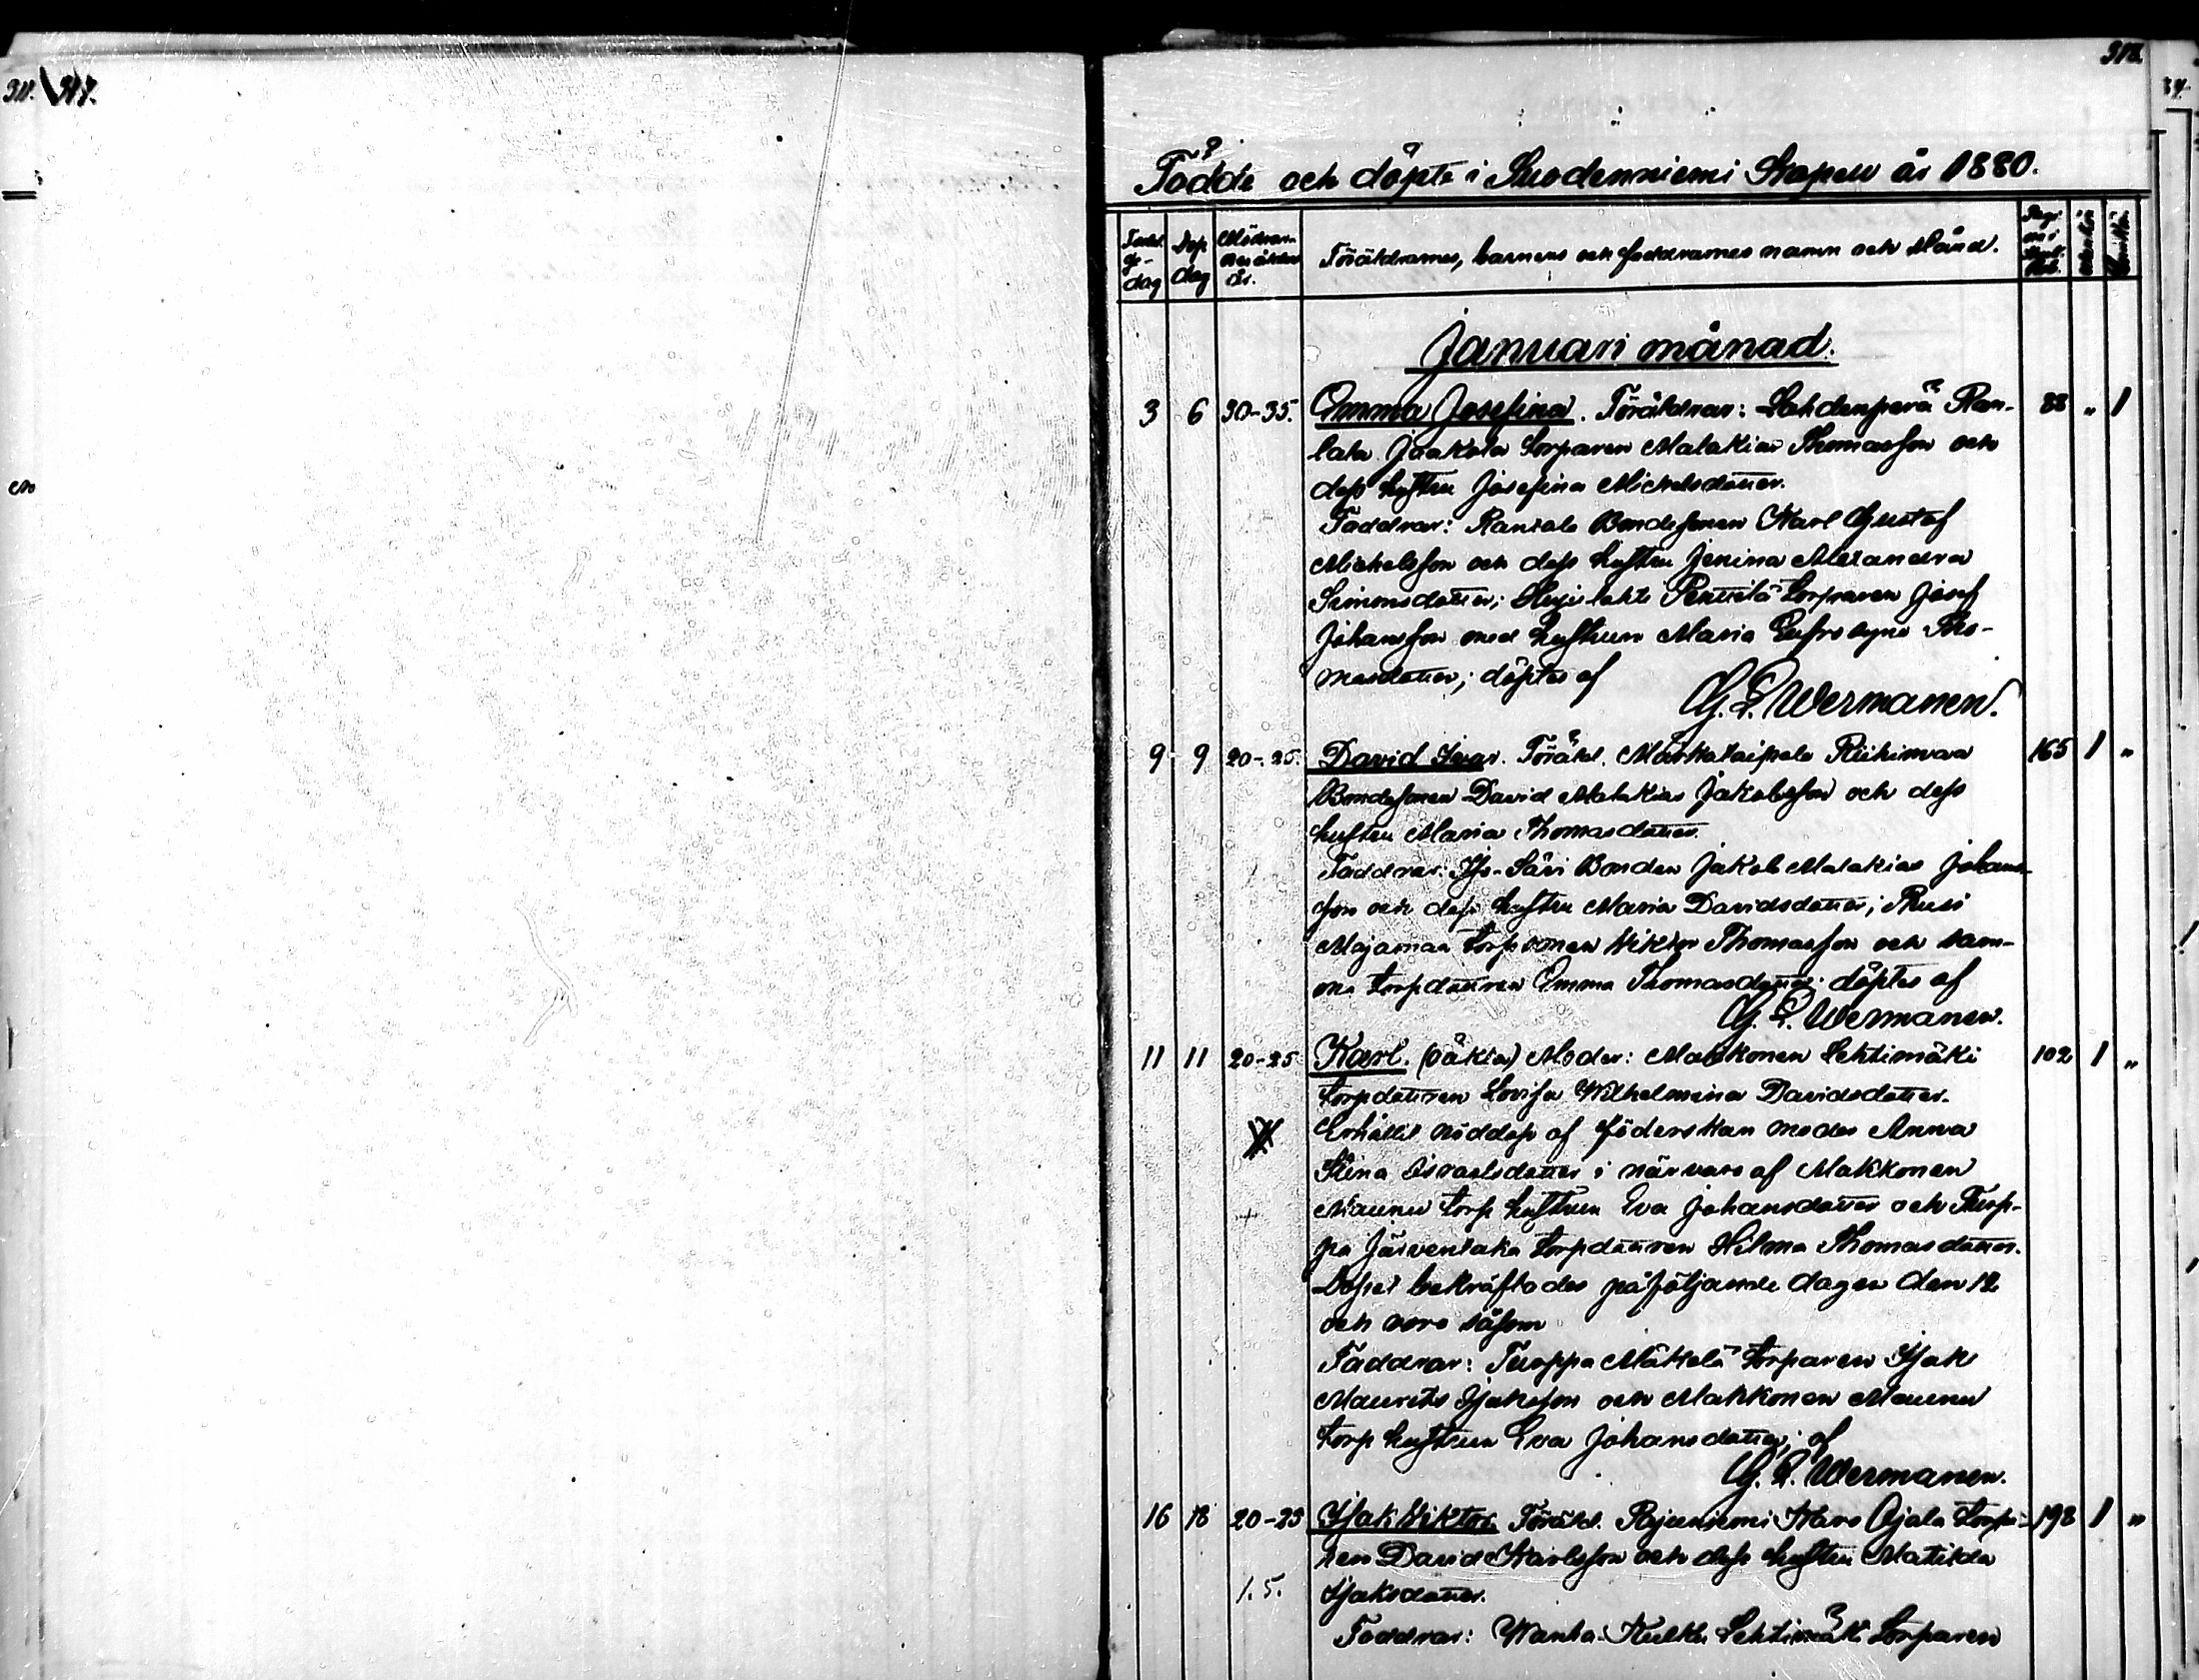 317.
318.
Födde och döpte i Suodenniemi Kapell år 1880.
Födel
se-
dag
Dop
dag
Mödrar-
nes ålder
år.
Föräldrarnes, barnens och faddrarnes namn och stånd.
Januari månad.
3 6 30-35. Emma Josefina. Föräldrar: Lahdenperä Ran-
Jaakola torparen Malakias Thomasson och
dess hustru Josefina Michelsdotter.
Faddrar: Bondesonen Karl Gustaf
Michelsson och dess hustru Jenina Alexandra
Simonsdotter; Penttilä torparen Josef
Johansson med hustrun Maria Eufrosyne Tho-
masdotter; döptes af
88 „ 1
G. E. Wermanen.
9 9 20-25. David Ivar. Föräld. Märkätaipale Riihimaa
Bondesonen David Malakias Jakobsson och dess
hustru Maria Thomasdotter.
165 1 „
Faddrar: Iso-Säri Bonden Jakob Malakias Johans-
son och dess hustru Maria Davidsdotter;
Majamaa torpsonen Viktor Thomasson och sam-
ma torpdottren Emma Thomasdotter; döptes af
G. E. Wermanen.
11 11 20-25 Karl. (oäkta) Moder: Makkonen Lehtimäki
torpdottren Lovisa Wilhelmina Davidsdotter.
102 1 „
Erhållit nöddop af föderskan moder Anna
Stina Israelsdotter i närvaro af Makkonen
Maunu torp hustrun Eva Johansdotter och Turp-
pa Järvensaka torpdottren Hilma Thomasdotter.
Dopet bekräftades påföljande dagen den 12
och voro såsom
Faddrar: Turppa Mäkelä torparen Isak
Maurits Isaksson och Makkonen Maunu
torp hustrun Eva Johansdotter; af
G. E. Wermanen.
16 18 20-25 Isak Viktor. Föräld. Rajuniemi Ojala torpa-
ren David Karlsson och dess hustru Matilda
Isaksdotter.
198 1 „
1.5.
Faddrar: Wanha-Kulku Lehtimäki torparen